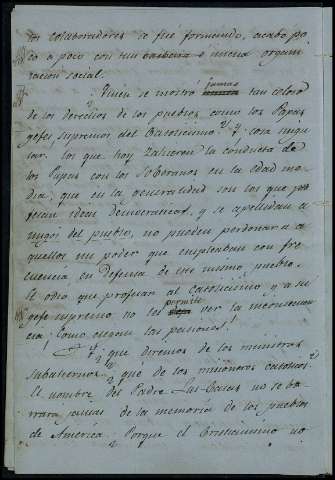 los colaboradores se fué formando, acabó po
co á poco con tan barbara é inicua organi
zacion social.
¿Quien se mostró jamas tan celoso
de los derechos de los pueblos como los Papas
gefes supremos del Catolicismo? Y cosa singu
lar, los que hoy zahieren la conducta de
los Papas con los Soberanos en la edad me
dia, que en la generalidad son los que pro
fesan ideas democraticas, y se apellidan a
migos del pueblo, no pueden perdonar a a
quellos un poder que empleaban con fre
cuencia en defensa de ese mismo pueblo.
El odio que profesan al catolicismo y a su
gefe supremo no les permite ver la inconsecuen
cia; ¡Como ciegan las pasiones!
¿Y que diremos de los ministros
subalternos, que de los misioneros catolicos?
El nombre del Padre Las-Casas no se bo
rrara jamas de la memoria de los pueblos
de America. Porque el Cristianismo no